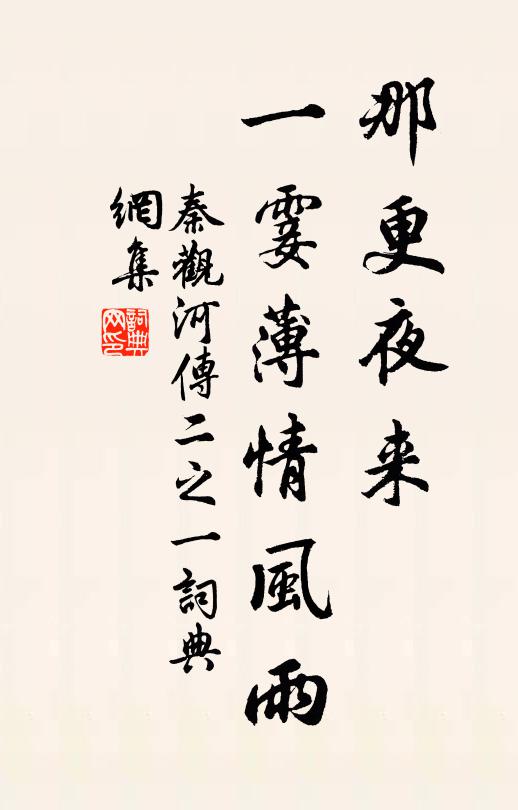 那更夜来
一霎薄情風雨
秦觀河傳二之一詞典
網集
詞典網印